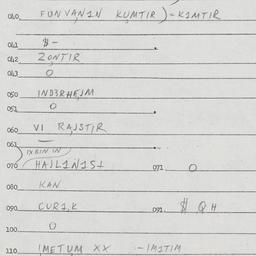 040 FUNVAN1N KUMTIR)-K1MTIR
041 $-
042 ZONTIR
043 O
050 IND3RHEJM
051 O
060 VI RAJSTIR
061
070 HAJL1N1S1 071 O
080 KAN
090 CUR1,K 091. $ QH
100 O
110 IMETUM XX -IM1TIM